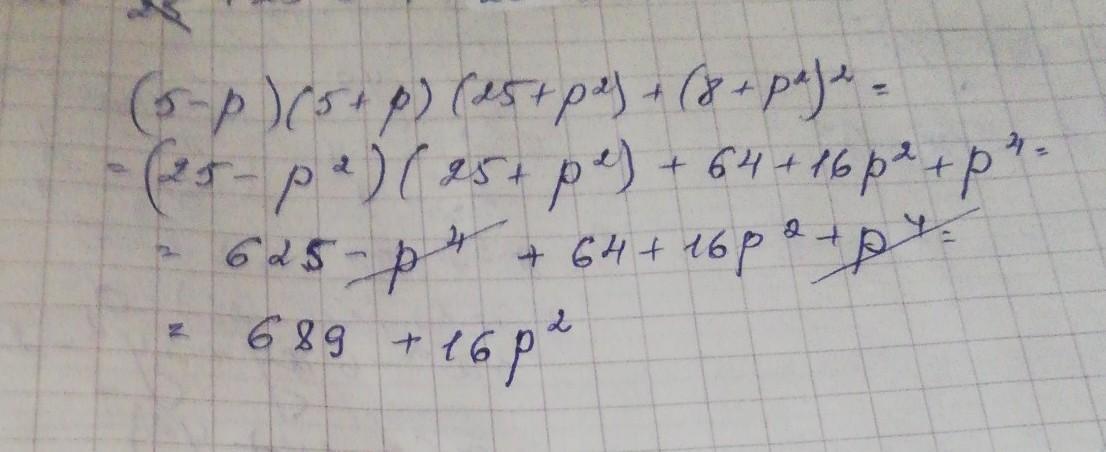 (5-p)(5+p)(25+p²)+(8+p²)²=
=(25-p²)(25+p²)+64+16p²+p⁴=
= 625-p⁴+64+16p²+p⁴=
= 689+16p²